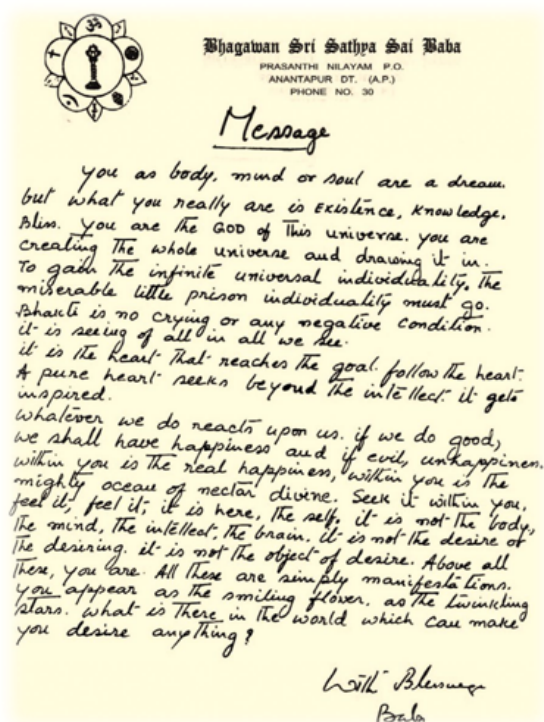 Bhagawan Sri Sathya Sai Baba
PRASANTHI NILAYAM P.O.
ANANTAPUR DT. (A.P.)
PHONE NO. 30
Message
You as body, mind or soul are a dream.
but what you really are is Existence, Knowledge,
Bliss. you are the GOD of This universe. you are
creating The whole universe and drawing it in.
To gain The infinite universal individuality, The
miserable little prison individuality must go.
Bhakti is no crying or any negative condition.
it is seeing of all in all we see.
it is the heart That reaches the goal. follow the heart.
A pure heart seeks beyond the intellect. it gets
inspired.
Whatever we do reacts upon us. if we do good,
we shall have happiness and if evil, unhappiness.
within you is the real happiness, within you is the
mighty ocean of nectar divine. Seek it within you,
feel it, feel it, it is here, the self. it is not the body,
the mind, the intellect, the brain. it is not the desire or
The desiring. it is not the object of desire. Above all
These, you are. All These are simply manifestations.
you appear as the smiling flower, as the twinkling
stars. what is There in the world which can make
you desire anything?
With Blessings
Baba